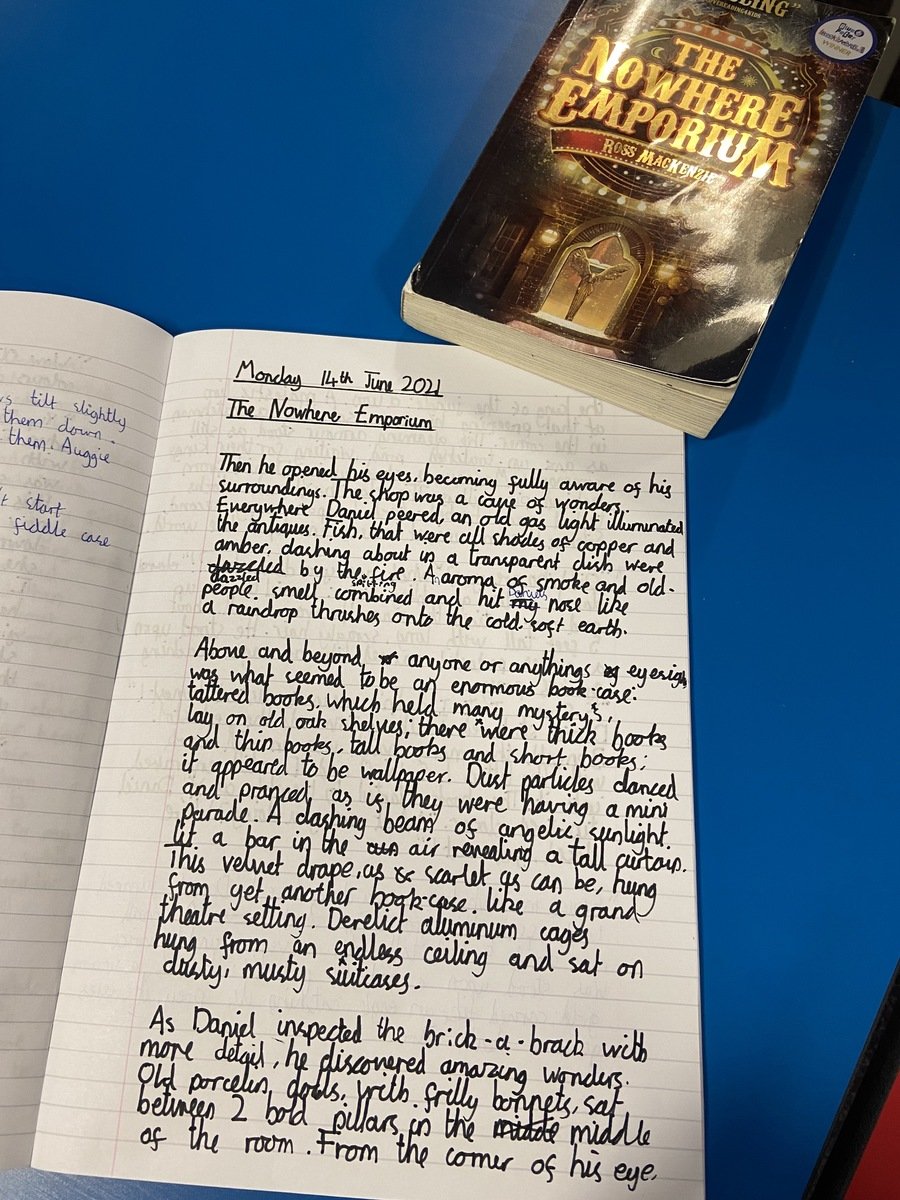 THE
NOWHERE
EMPORIUM
ROSS MACKENZIE
WINNER
tilt slightly
them down.
them. Auggie
start
fiddle case
Monday 14th June 2021
The Nowhere Emporium
Then he opened his eyes, becoming fully aware of his
surroundings. The shop was a cave of wonders.
Everywhere Daniel peered, an old gas light illuminated
the antiques. Fish, that were all shades of copper and
amber, dashing about in a transparent dish were
dazzled by the spitting fire. An aroma of smoke and old-
people smell combined and hit Daniels nose like
a raindrop thrushes onto the cold soft earth.
Above and beyond, anyone or anythings eyesigh
was what seemed to be an enormous book-case:
tattered books, which held many mysterys,
lay on old oak shelves; there were thick books
and thin books, tall books and short books;
it appeared to be wallpaper. Dust particles danced
and pranced as is they were having a mini
parade. A dashing beam of angelic sunlight
lit a bar in the air revealing a tall curtain.
This velvet drape, as scarlet as can be, hung
from yet another book-case like a grand
theatre setting. Derelict aluminum cages
hung from an endless ceiling and sat on
dusty, musty suitcases.
As Daniel inspected the brick-a-brack with
more detail, he discovered amazing wonders.
Old porcelin dolls, with frilly bonnets, sat
between 2 bold pillars in the middle
of the room. From the corner of his eye,